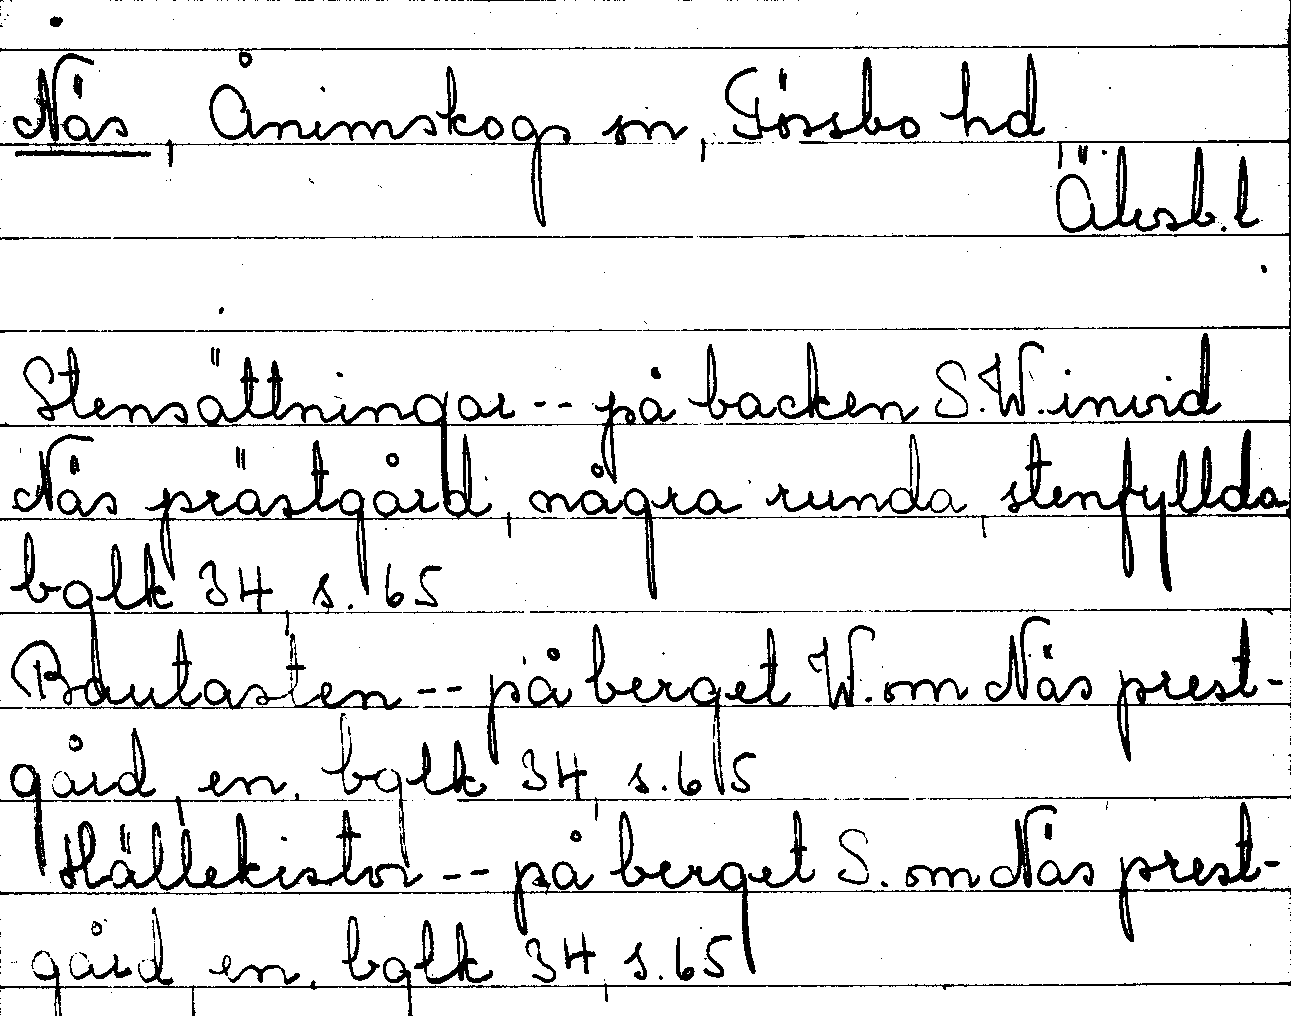 Näs, Ånimskogs sn, Tössbo hd
Älvsb. l
Stensättningar -- på backen S.W. invid
Näs prästgård, några runda, stenfyllda
bglk 34, s. 65
Bautasten -- på berget W. om Näs prest-
gård, en. bglk 34, s. 65
Hällekistor -- på berget S. om Näs prest-
gård, en. bglk 34, s. 65